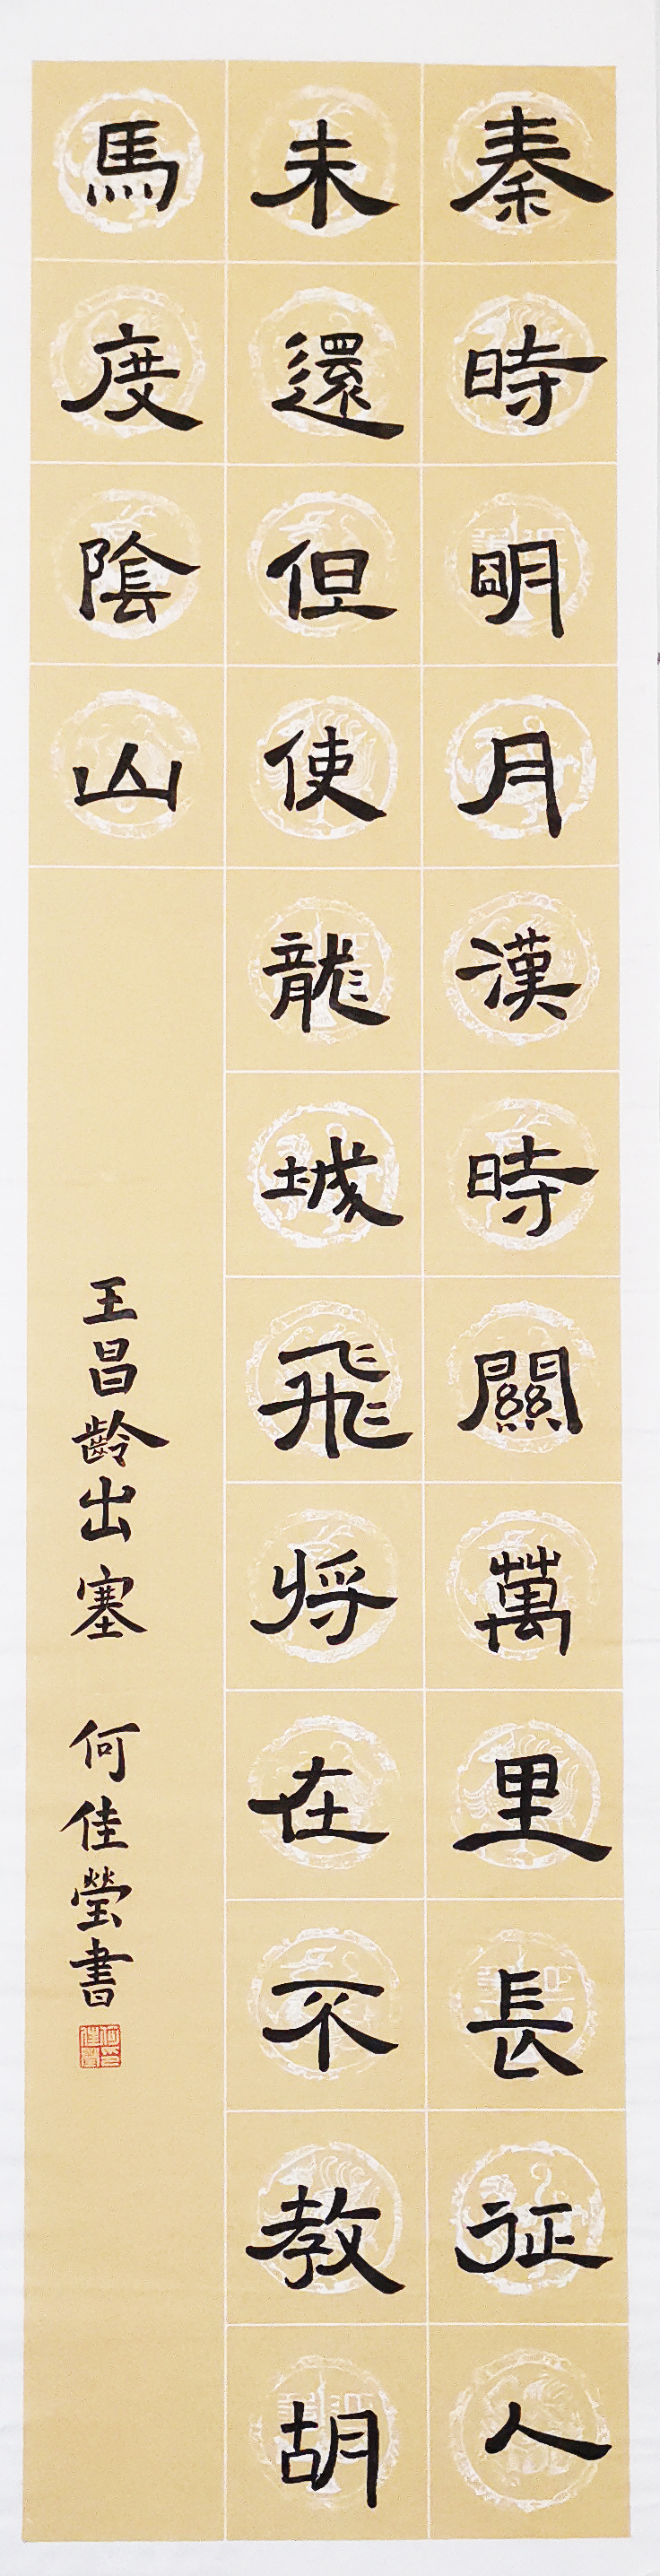 秦時明月漢時關萬里長征人
未還但使龍城飛将在不教胡
馬度陰山
王昌齡出塞 何佳瑩書